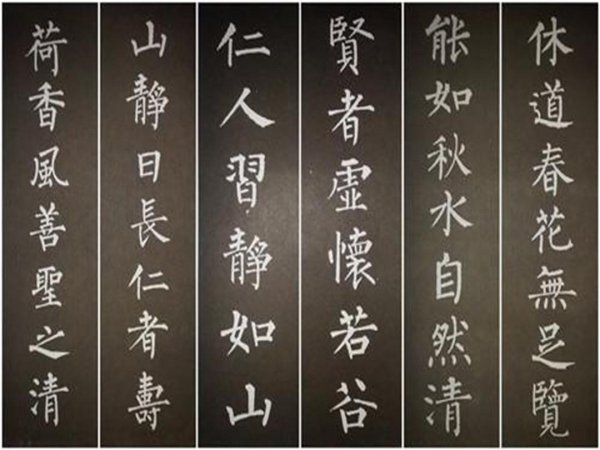 休道春花無足覽
能如秋水自然清
賢者虛懷若谷
仁人習靜如山
山靜日長仁者壽
荷香風善聖之清